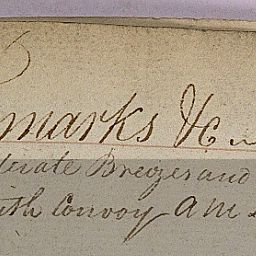 marks &c
derate Breezes and
ith Convoy AM